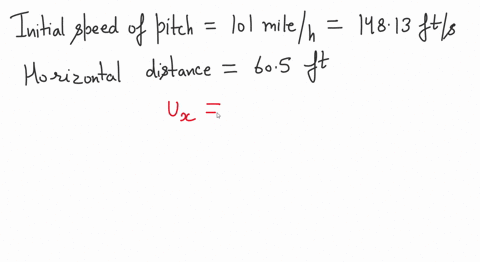 Initial speed of pitch = 101 mile/h = 148.13 ft/s
Horizontal distance = 60.5 ft
Ux =